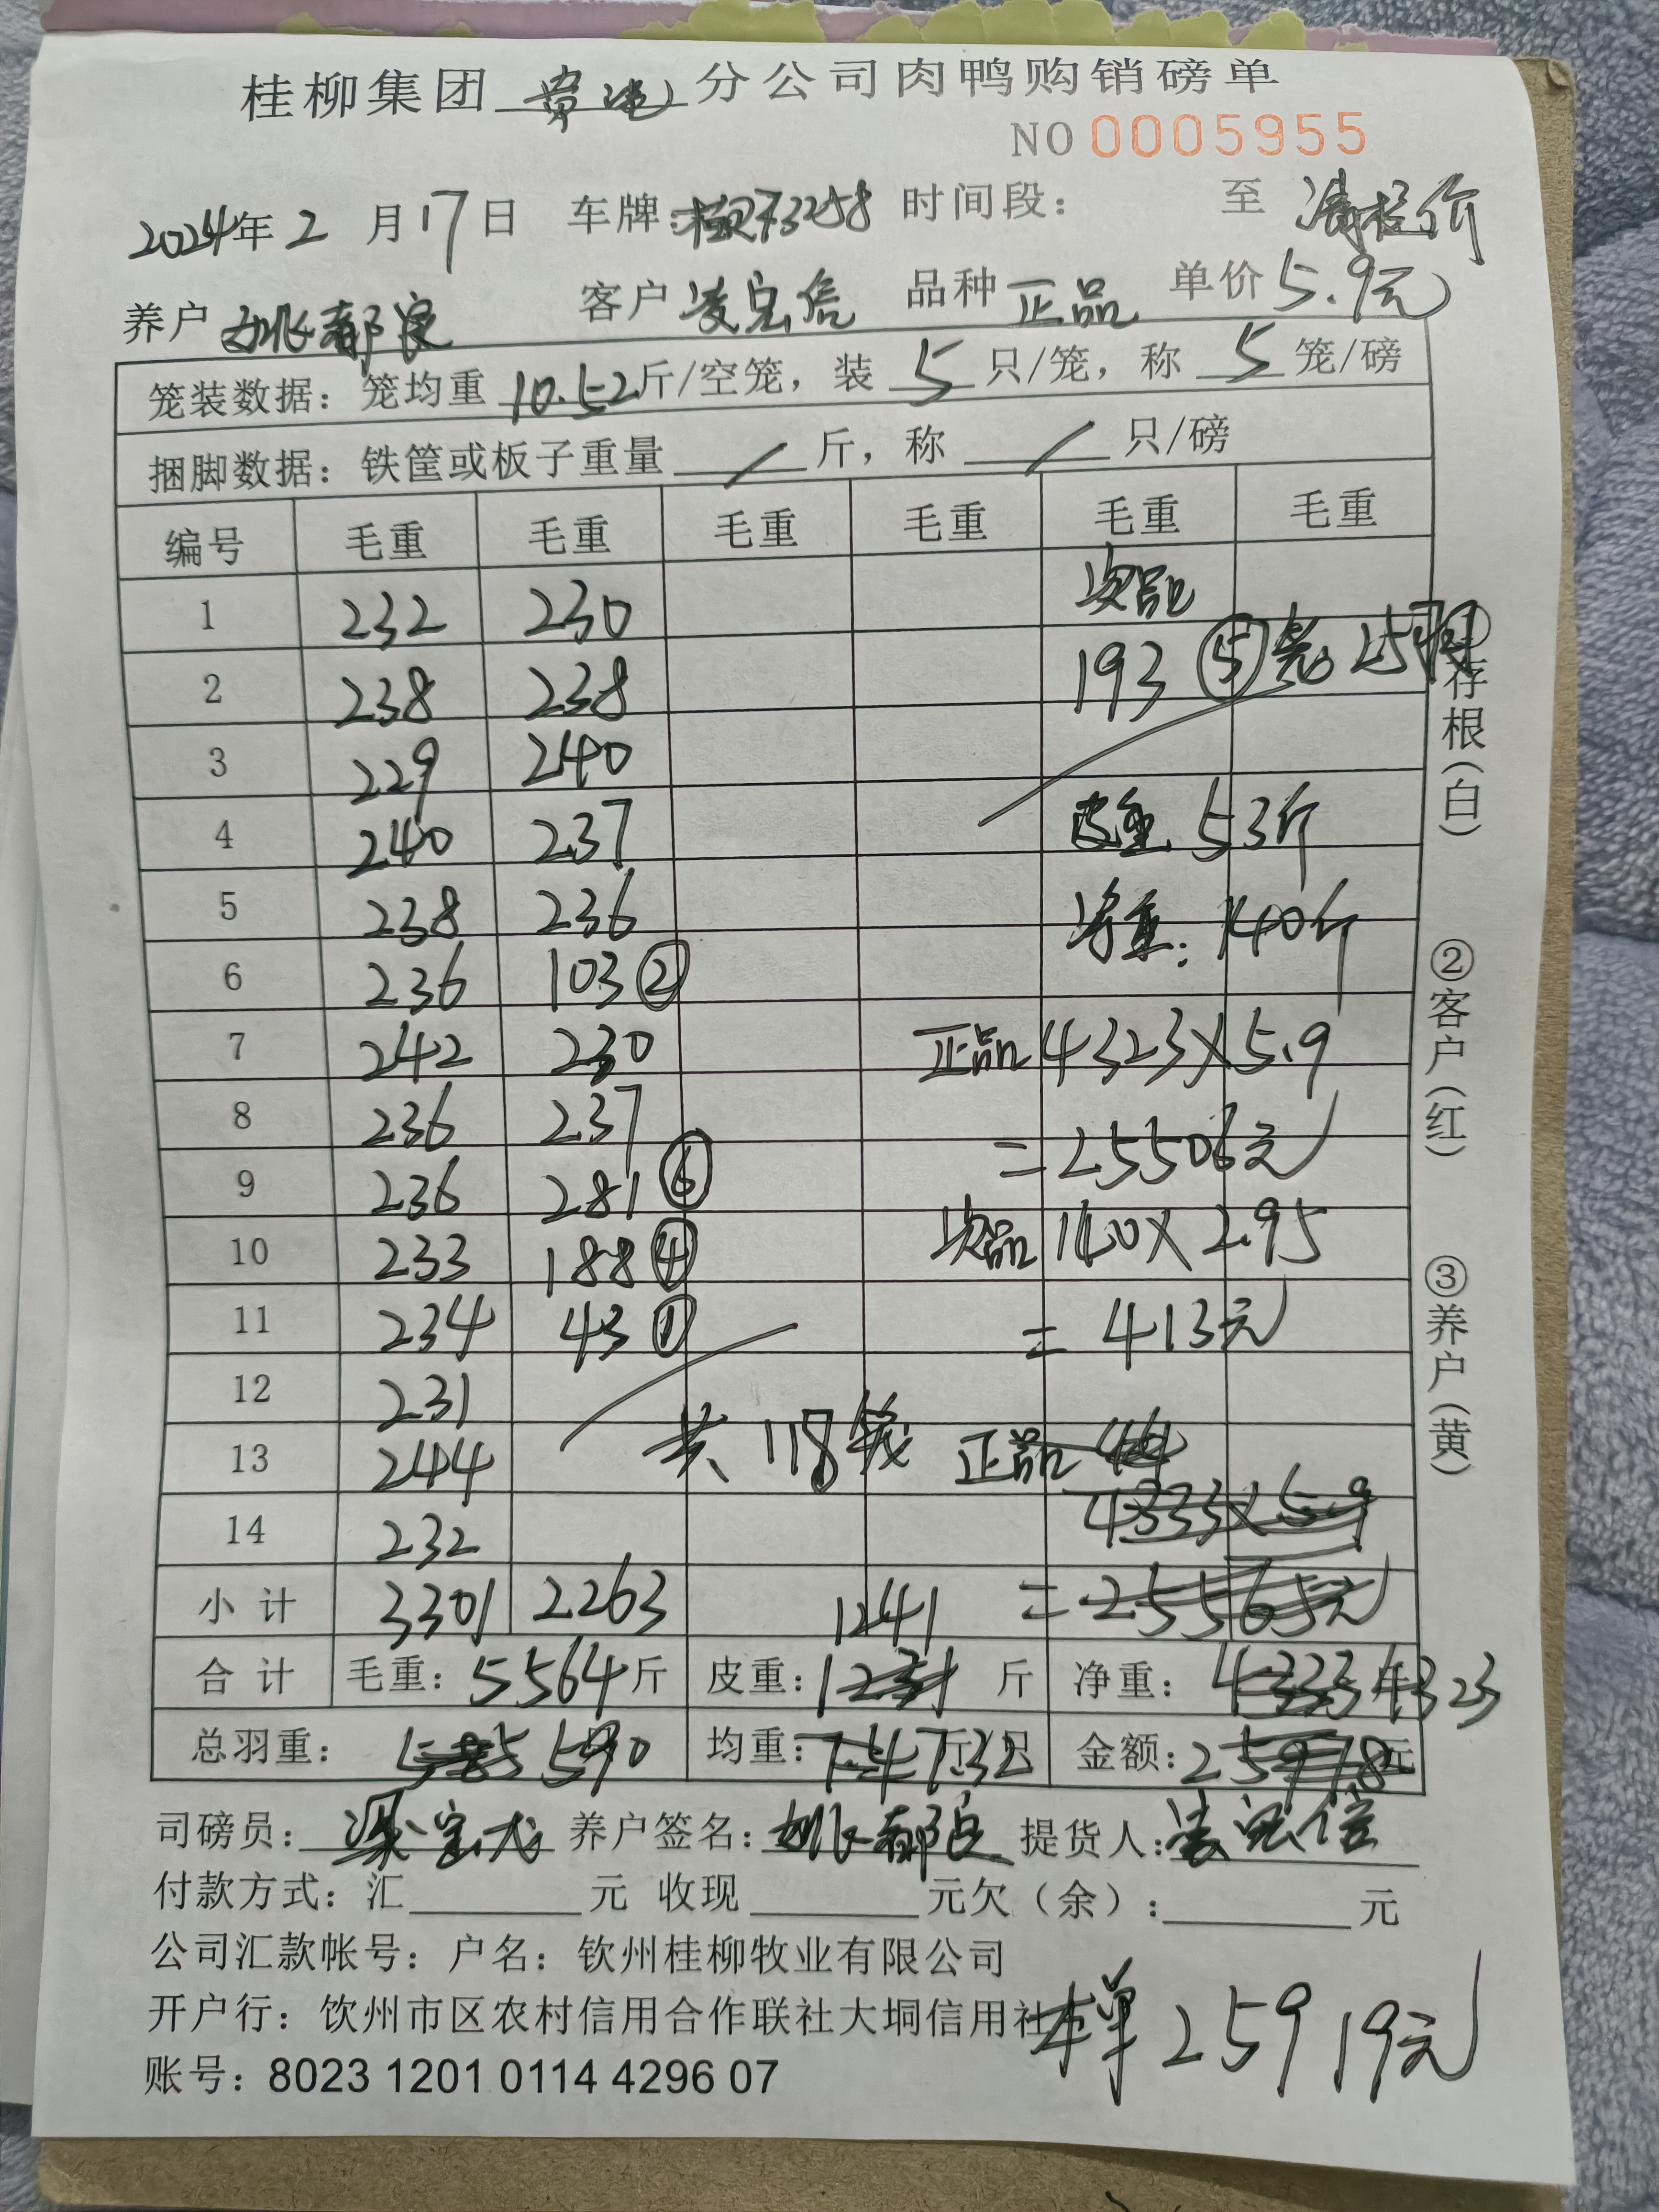 桂柳集团 贵港 分公司肉鸭购销磅单
NO 0005955
2024年2月17日 车牌: 73258 时间段: 至 清栏价
养户 姚都良 客户 凌宝信 品种 正品 单价 5.9元
笼装数据: 笼均重 10.52 斤/空笼, 装 5 只/笼, 称 5 笼/磅
捆脚数据: 铁筐或板子重量 / 斤, 称 / 只/磅
编号 毛重 毛重 毛重 毛重 毛重 毛重
1 232 230 次品
2 238 238 193 ⑤笼 25只
3 229 240
4 240 237 皮重 53斤
5 238 236 净重: 140斤
6 236 103②
7 242 230 正品 4323×5.9
8 236 237 =25506元
9 236 281⑥
10 233 188④ 次品 140×2.95
11 234 43① =413元
12 231
13 244 共118笼 正品
14 232 4333×5.9
小计 3301 2263 1241 =25565元
合计 毛重: 5564斤 皮重: 1231 斤 净重: 4333 4323
总羽重: 585 590 均重: 7.4 7.32 斤/只 金额: 25978元
司磅员: 梁宝龙 养户签名: 姚都良 提货人: 凌宝信
付款方式: 汇 元 收现 元欠(余): 元
公司汇款帐号: 户名: 钦州桂柳牧业有限公司
开户行: 钦州市区农村信用合作联社大垌信用社
本单 25919元
账号: 8023 1201 0114 4296 07
①存根(白)
②客户(红)
③养户(黄)